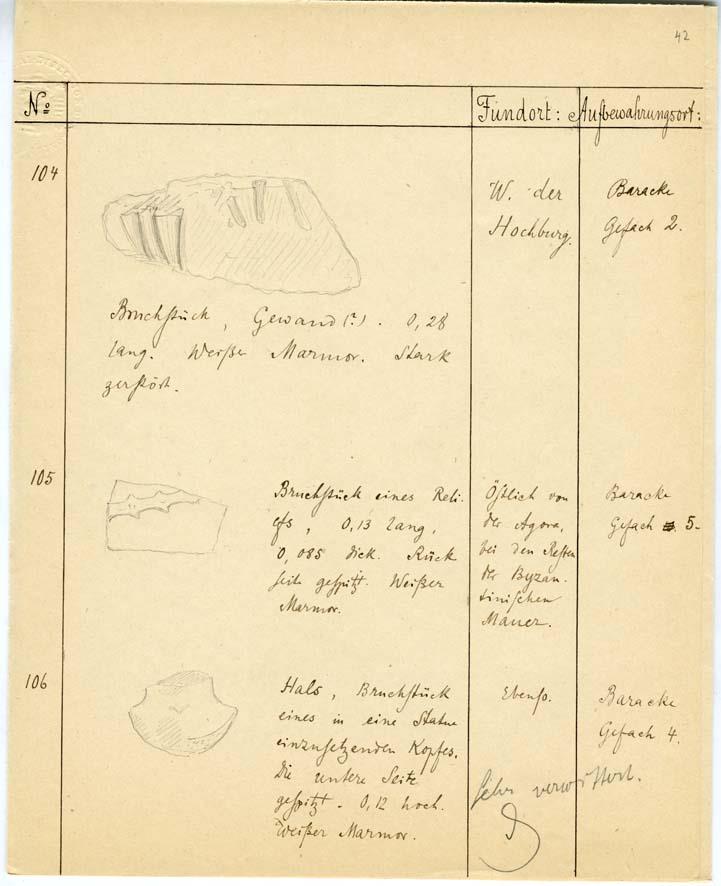 42
No Fundort: Aufbewahrungsort:
104
W. der
Hochburg.
Baracke
Gefach 2.
Bruchstück, Gewand(?). 0,28
lang. Weißer Marmor. Stark
zerstört.
105
Bruchstück eines Reli-
efs, 0,13 lang,
0,085 dick. Rück
seite gespitzt. Weißer
Marmor.
Östlich von
der Agora,
bei den Resten
der Byzan-
tinischen
Mauer.
Baracke
Gefach 5.
106
Hals, Bruchstück
eines in eine Statue
einzusetzenden Kopfes.
Die untere Seite
gespitzt. 0,12 hoch.
Weißer Marmor.
Ebenso.
Baracke
Gefach 4.
sehr verwittert.